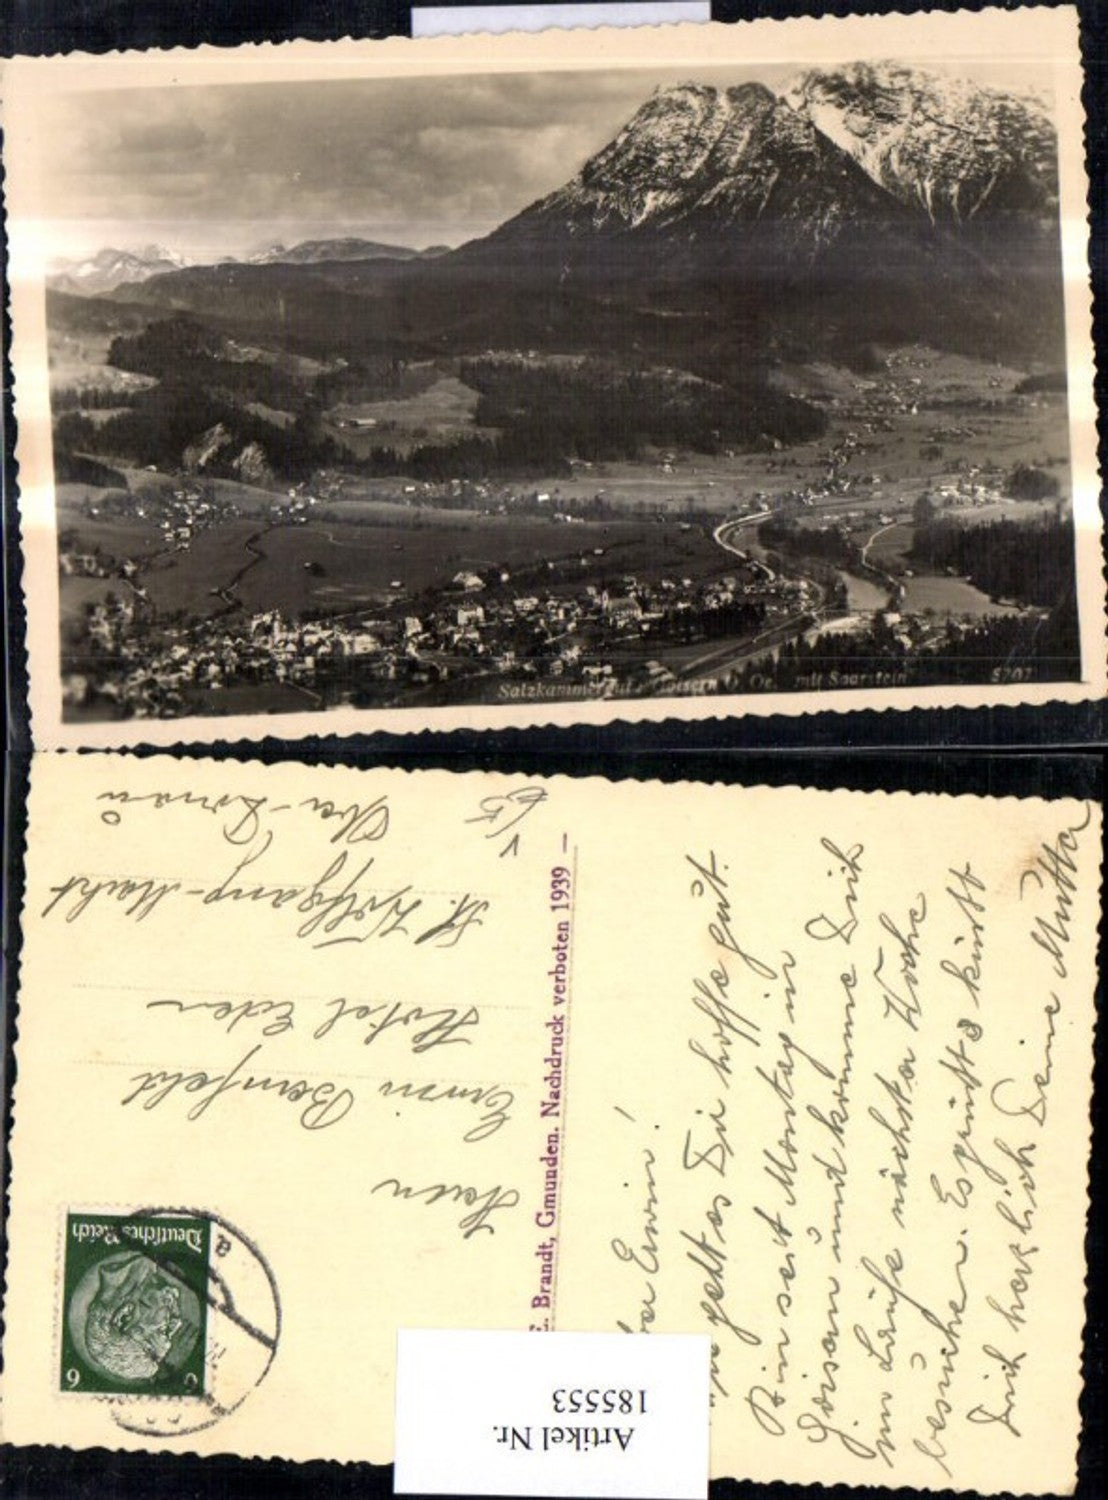 Salzkammergut, Goisern O. Oe. mit Saarstein 5707
Herrn
Erwin Bernfeld
Hotel Eden
St. Wolfgang-Markt
Ober-Donau
E. Brandt, Gmunden. Nachdruck verboten 1939
Deutsches Reich
6 6
a
Erwin!
geht es Dir hoffe gut.
Bin seit Montag in
Goisern und komme Dich
im Laufe nächster Woche
besuchen. Es grüßt & küsst
Dich herzlich Deine Mutter
Artikel Nr.
185553